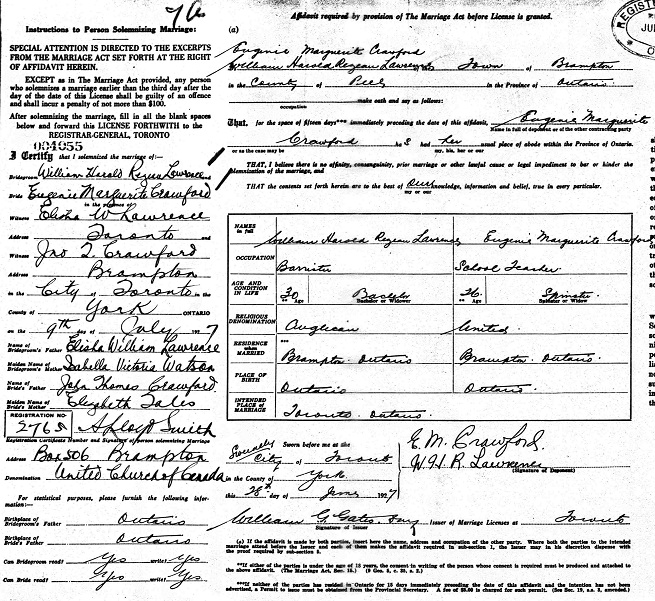 Instructions to Person Solemnizing Marriage:
SPECIAL ATTENTION IS DIRECTED TO THE EXCERPTS
FROM THE MARRIAGE ACT SET FORTH AT THE RIGHT
OF AFFIDAVIT HEREIN.
EXCEPT as in The Marriage Act provided, any person
who solemnizes a marriage earlier than the third day after the
day of the date of this License shall be guilty of an offence
and shall incur a penalty of not more than $100.
After solemnizing the marriage, fill in all the blank spaces
below and forward this LICENSE FORTHWITH to the
REGISTRAR-GENERAL, TORONTO
004055
I Certify that I solemnized the marriage of:—
Bridegroom William Harold Rezeau Lawrence
Bride Eugenie Marguerite Crawford
in the presence of
Witness Elisha W Lawrence
Address Toronto and
Witness Jno T. Crawford
Address Brampton
in the City of Toronto in the
County of York ONTARIO
on the 9th day of July 1927
Name of Bridegroom's Father Elisha William Lawrence
Maiden Name of Bridegroom's Mother Isabella Victoria Watson
Name of Bride's Father John Thomas Crawford
Maiden Name of Bride's Mother Elizabeth
REGISTRATION NO.
2765 A Lloyd Smith
Registration Certificate Number and Signature of person solemnizing Marriage
Address Box 506 Brampton
Denomination United Church of Canada
For statistical purposes, please furnish the following information—
Birthplace of Bridegroom's Father Ontario
Birthplace of Bride's Father Ontario
Can Bridegroom read? Yes write? Yes
Can Bride read? Yes write? Yes.
Affidavit required by provision of The Marriage Act before License is granted.
REGIST
JU
(a)
Eugenie Marguerite Crawford
William Harold Rezeau Lawrence Town of Brampton
in the County of Peel in the Province of Ontario
occupation make oath and say as follows:
That, for the space of fifteen days*** immediately preceding the date of this affidavit, Eugenie Marguerite
Name in full of deponent or of the other contracting party
Crawford had her usual place of abode within the Province of Ontario.
or as the case may be my, his, her or our
THAT, I believe there is no affinity, consanguinity, prior marriage or other lawful cause or legal impediment to bar or hinder the
solemnization of the marriage, and
THAT the contents set forth herein are to the best of our knowledge, information and belief, true in every particular.
my or our
NAMES in full William Harold Rezeau Lawrence Eugenie Marguerite Crawford
OCCUPATION Barrister School Teacher
AGE AND CONDITION IN LIFE 30 Bachelor 26 Spinster
** Age Bachelor or Widower ** Age Spinster or Widow
RELIGIOUS DENOMINATION Anglican United
RESIDENCE WHEN MARRIED *** Brampton Ontario Brampton Ontario
PLACE OF BIRTH Ontario Ontario
INTENDED PLACE OF MARRIAGE Toronto Ontario
Severally Sworn before me at the
City of Toronto
in the County of York
this 28th day of June 1927
E. M. Crawford
W. H. R. Lawrence
(Signature of Deponent)
William G. Gates Issuer of Marriage Licenses at Toronto
Signature of Issuer
(a) If the affidavit is made by both parties, insert here the name, address and occupation of the other party. Where both the parties to the intended
marriage attend before the issuer and each of them makes the affidavit required in subsection 1, the issuer may in his discretion dispense with the
proof required by subsection 2.
**If either of the parties is under the age of 18 years, the consent in writing of the person whose consent is required must be produced and attached to
the above affidavit. (The Marriage Act, Sec. 15.)
***If neither of the parties has resided in Ontario for 15 days immediately preceding the date of this affidavit and the intention has not been
advertised, a Permit to issue must be obtained from the Provincial Secretary. A fee of $5.00 is charged for such permit. (See Sec. 19, s.s. 3, amended.)